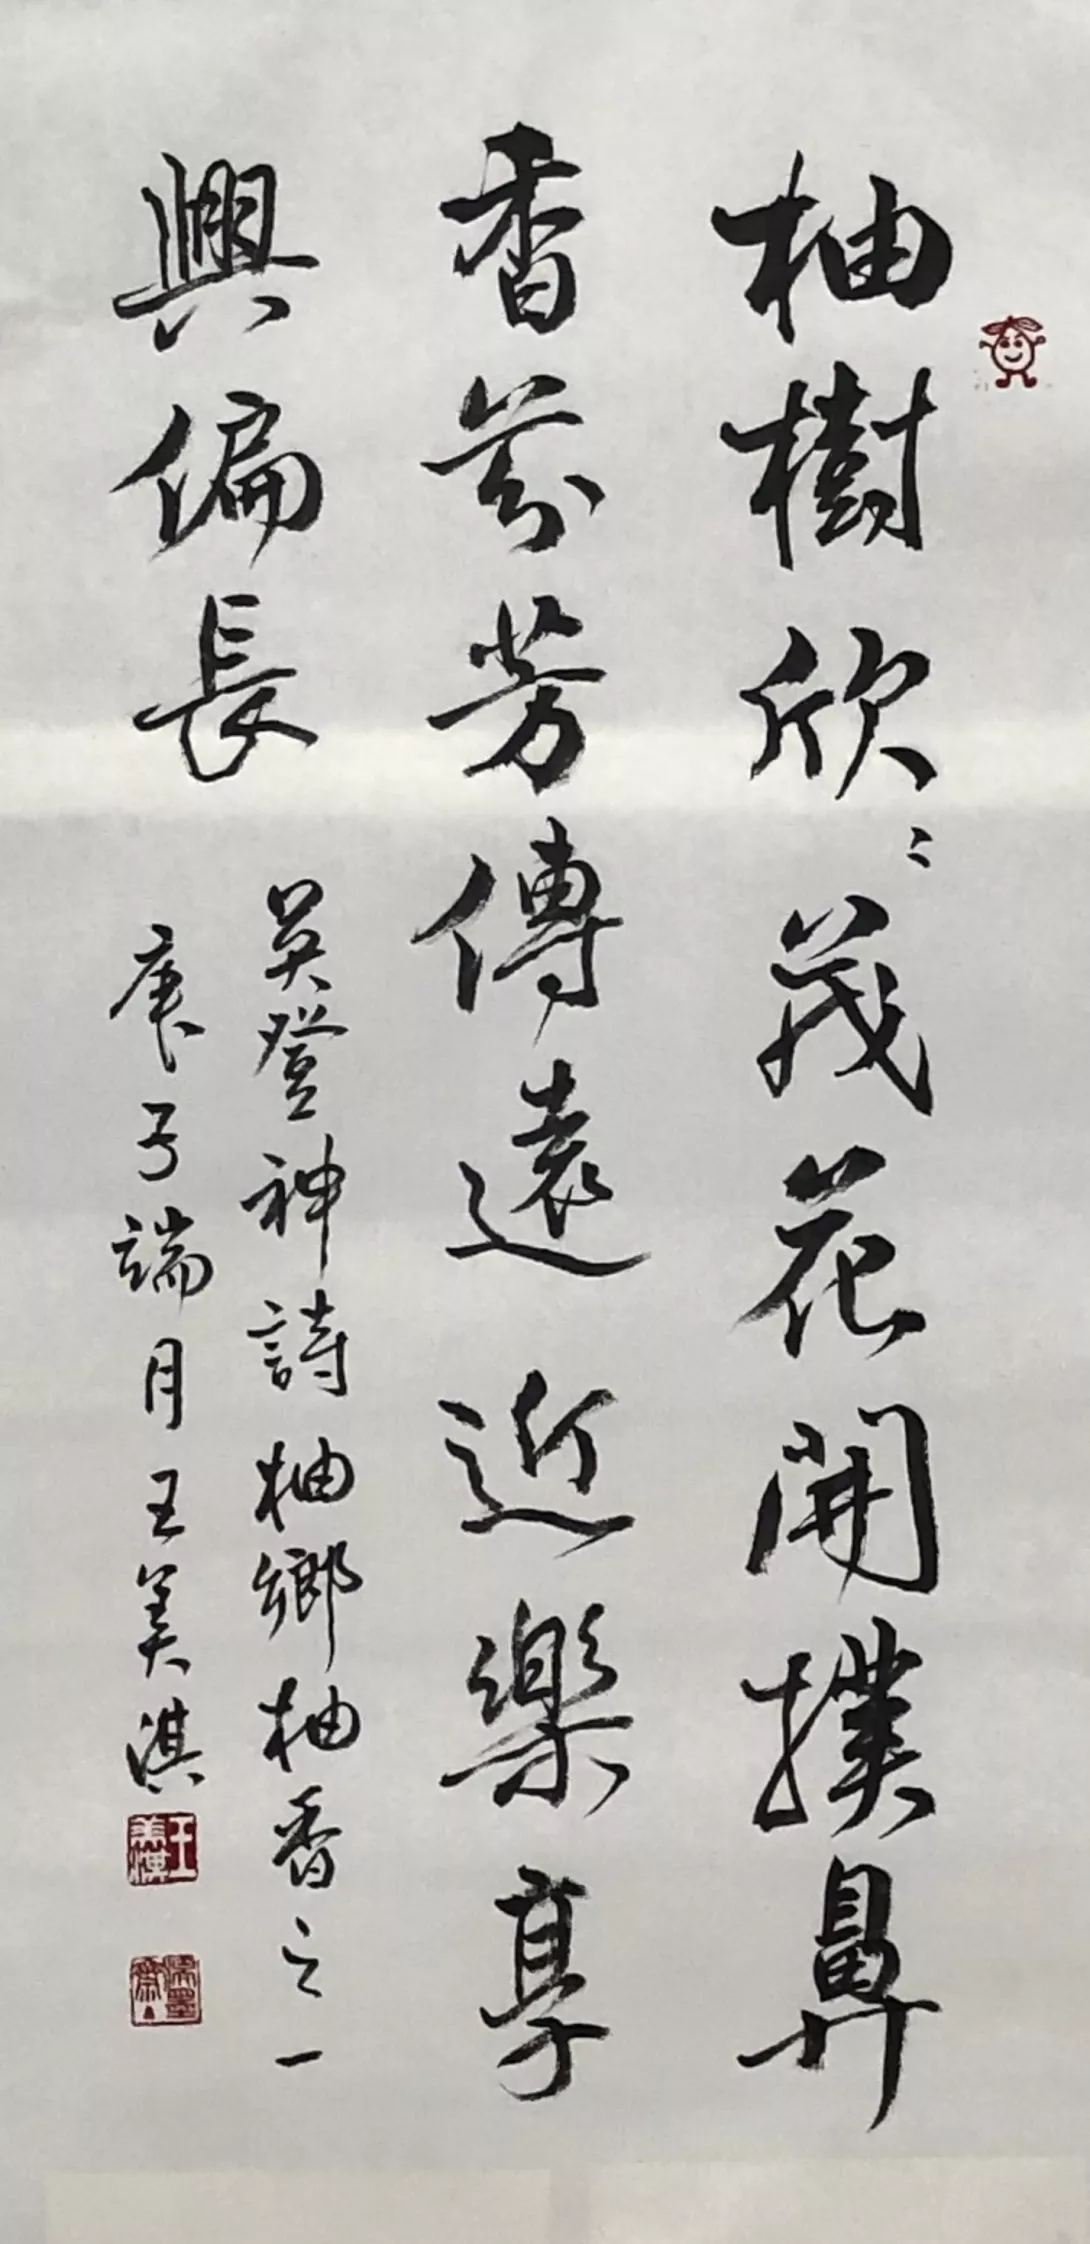 柚樹欣欣茂花開撲鼻
香芬芳傳遠近樂享
興偏長
英登神詩柚鄉柚香之一
庚子端月王美淇
王美淇